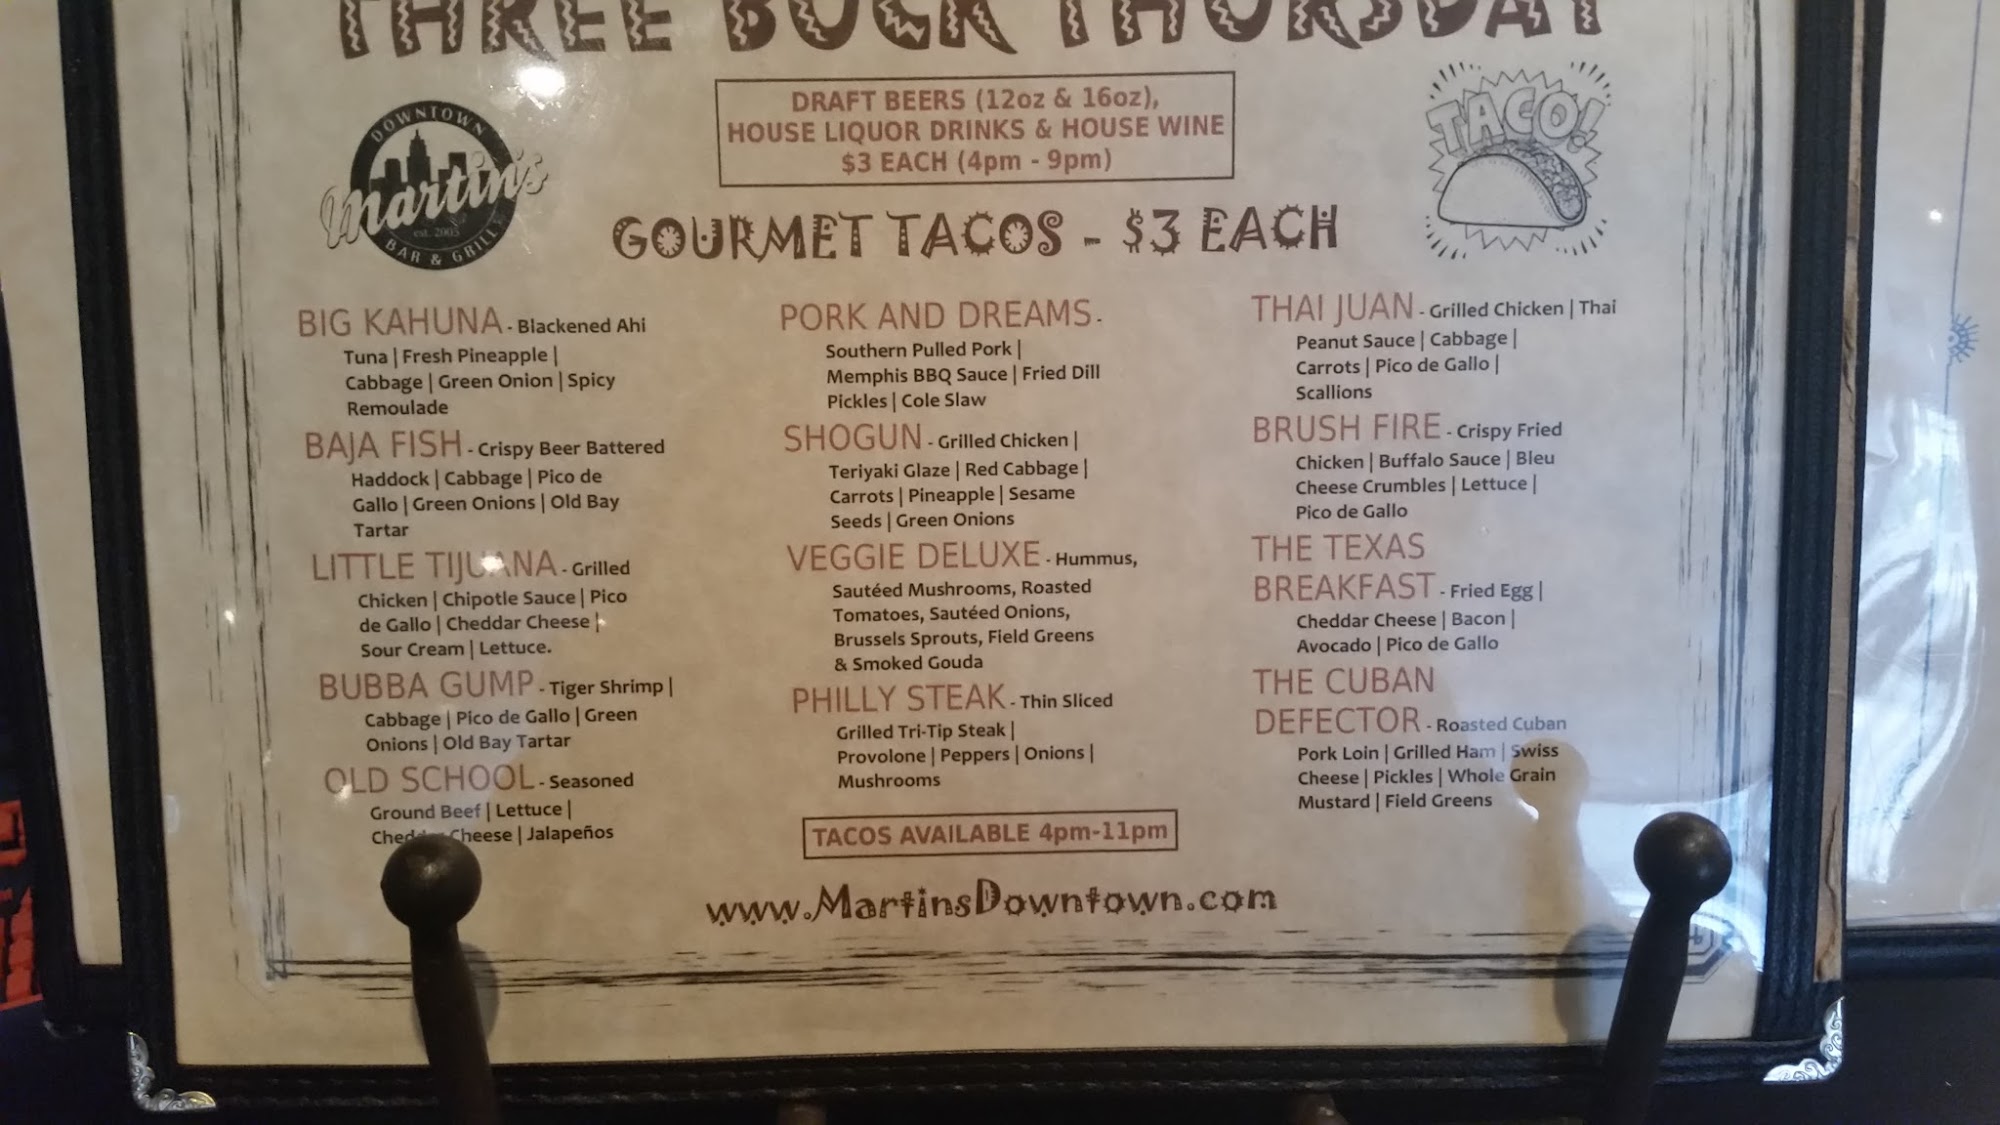 THREE BUCK THURSDAY
DOWNTOWN
Martin's
est. 2005
BAR & GRILL
DRAFT BEERS (12oz & 16oz),
HOUSE LIQUOR DRINKS & HOUSE WINE
$3 EACH (4pm - 9pm)
TACO!
GOURMET TACOS - $3 EACH
BIG KAHUNA - Blackened Ahi
Tuna | Fresh Pineapple |
Cabbage | Green Onion | Spicy
Remoulade
BAJA FISH - Crispy Beer Battered
Haddock | Cabbage | Pico de
Gallo | Green Onions | Old Bay
Tartar
LITTLE TIJUANA - Grilled
Chicken | Chipotle Sauce | Pico
de Gallo | Cheddar Cheese |
Sour Cream | Lettuce.
BUBBA GUMP - Tiger Shrimp |
Cabbage | Pico de Gallo | Green
Onions | Old Bay Tartar
OLD SCHOOL - Seasoned
Ground Beef | Lettuce |
Cheddar Cheese | Jalapeños
PORK AND DREAMS -
Southern Pulled Pork |
Memphis BBQ Sauce | Fried Dill
Pickles | Cole Slaw
SHOGUN - Grilled Chicken |
Teriyaki Glaze | Red Cabbage |
Carrots | Pineapple | Sesame
Seeds | Green Onions
VEGGIE DELUXE - Hummus,
Sautéed Mushrooms, Roasted
Tomatoes, Sautéed Onions,
Brussels Sprouts, Field Greens
& Smoked Gouda
PHILLY STEAK - Thin Sliced
Grilled Tri-Tip Steak |
Provolone | Peppers | Onions |
Mushrooms
THAI JUAN - Grilled Chicken | Thai
Peanut Sauce | Cabbage |
Carrots | Pico de Gallo |
Scallions
BRUSH FIRE - Crispy Fried
Chicken | Buffalo Sauce | Bleu
Cheese Crumbles | Lettuce |
Pico de Gallo
THE TEXAS
BREAKFAST - Fried Egg |
Cheddar Cheese | Bacon |
Avocado | Pico de Gallo
THE CUBAN
DEFECTOR - Roasted Cuban
Pork Loin | Grilled Ham | Swiss
Cheese | Pickles | Whole Grain
Mustard | Field Greens
TACOS AVAILABLE 4pm-11pm
www.MartinsDowntown.com